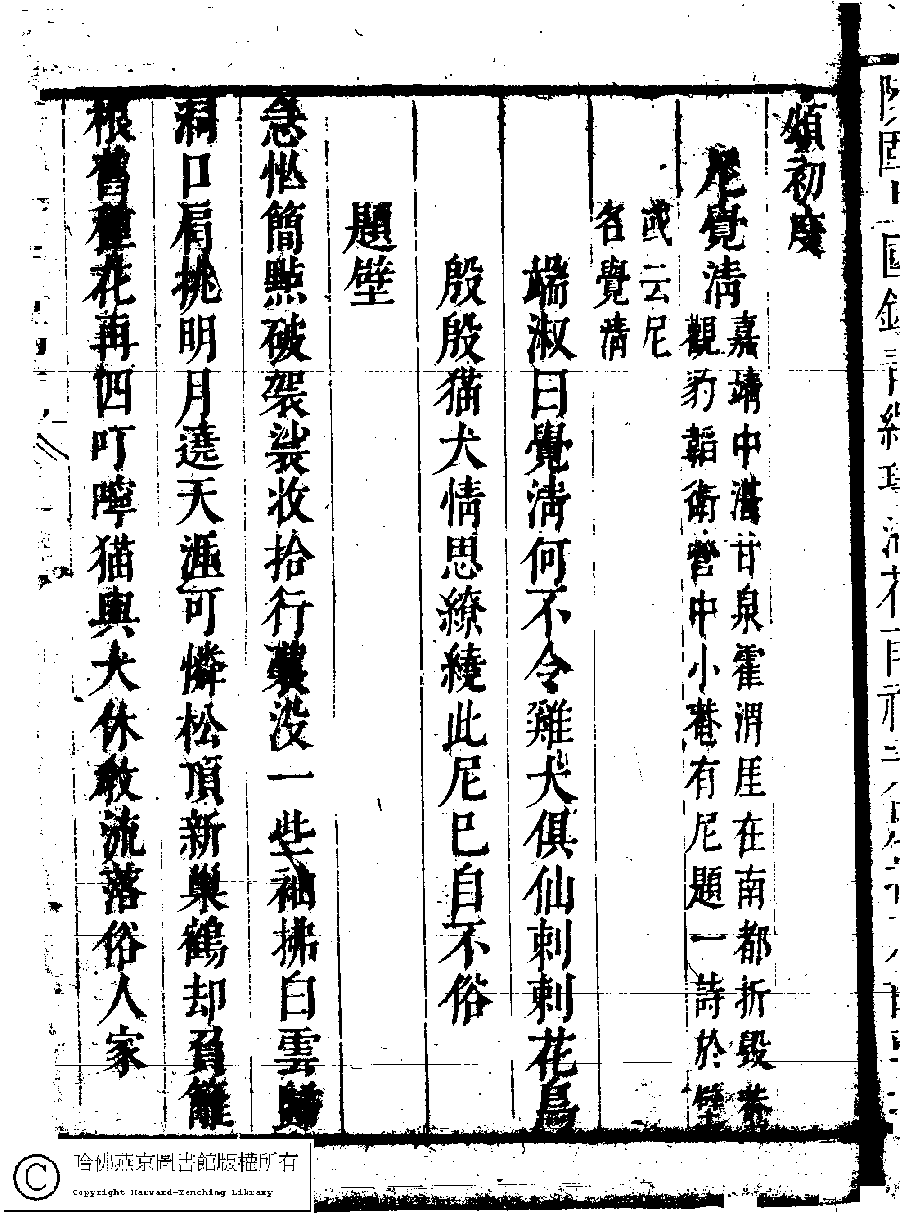 頌初度
尼覺淸
嘉靖中湛甘泉霍渭厓在南都折毀菴
觀豹韜衛營中小菴有尼題一詩於壁
或云尼
名覺淸
端淑曰覺淸何不令雞犬俱仙刺刺花鳥
殷殷猫犬情思繚繞此尼已自不俗
題壁
急怱簡點破袈裟收拾行囊没一些袖拂白雲歸
洞口肩挑明月遶天涯可憐松頂新巢鶴却負籬
根舊種花再四叮嚀猫與犬休敢流落俗人家
哈佛燕京圖書館版權所有
Copyright Harvard-Yenching Library